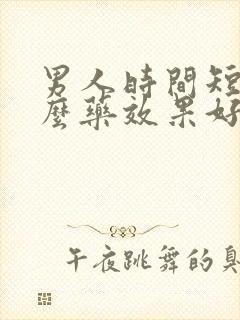 男人時間短
麼藥效果好
午夜跳舞的